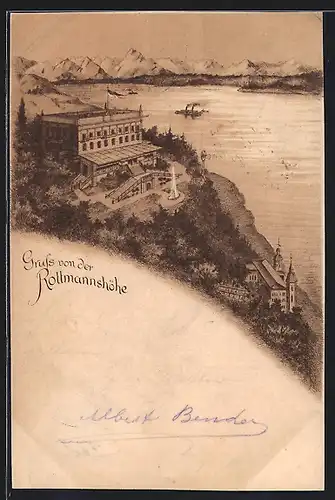 Gruß von der
Rottmannshöhe
Albert Bender